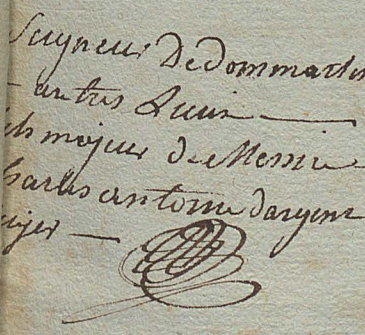 Seigneur De dommartin
autres Lieux
fils majeur de Messire
Charles antoine dargent